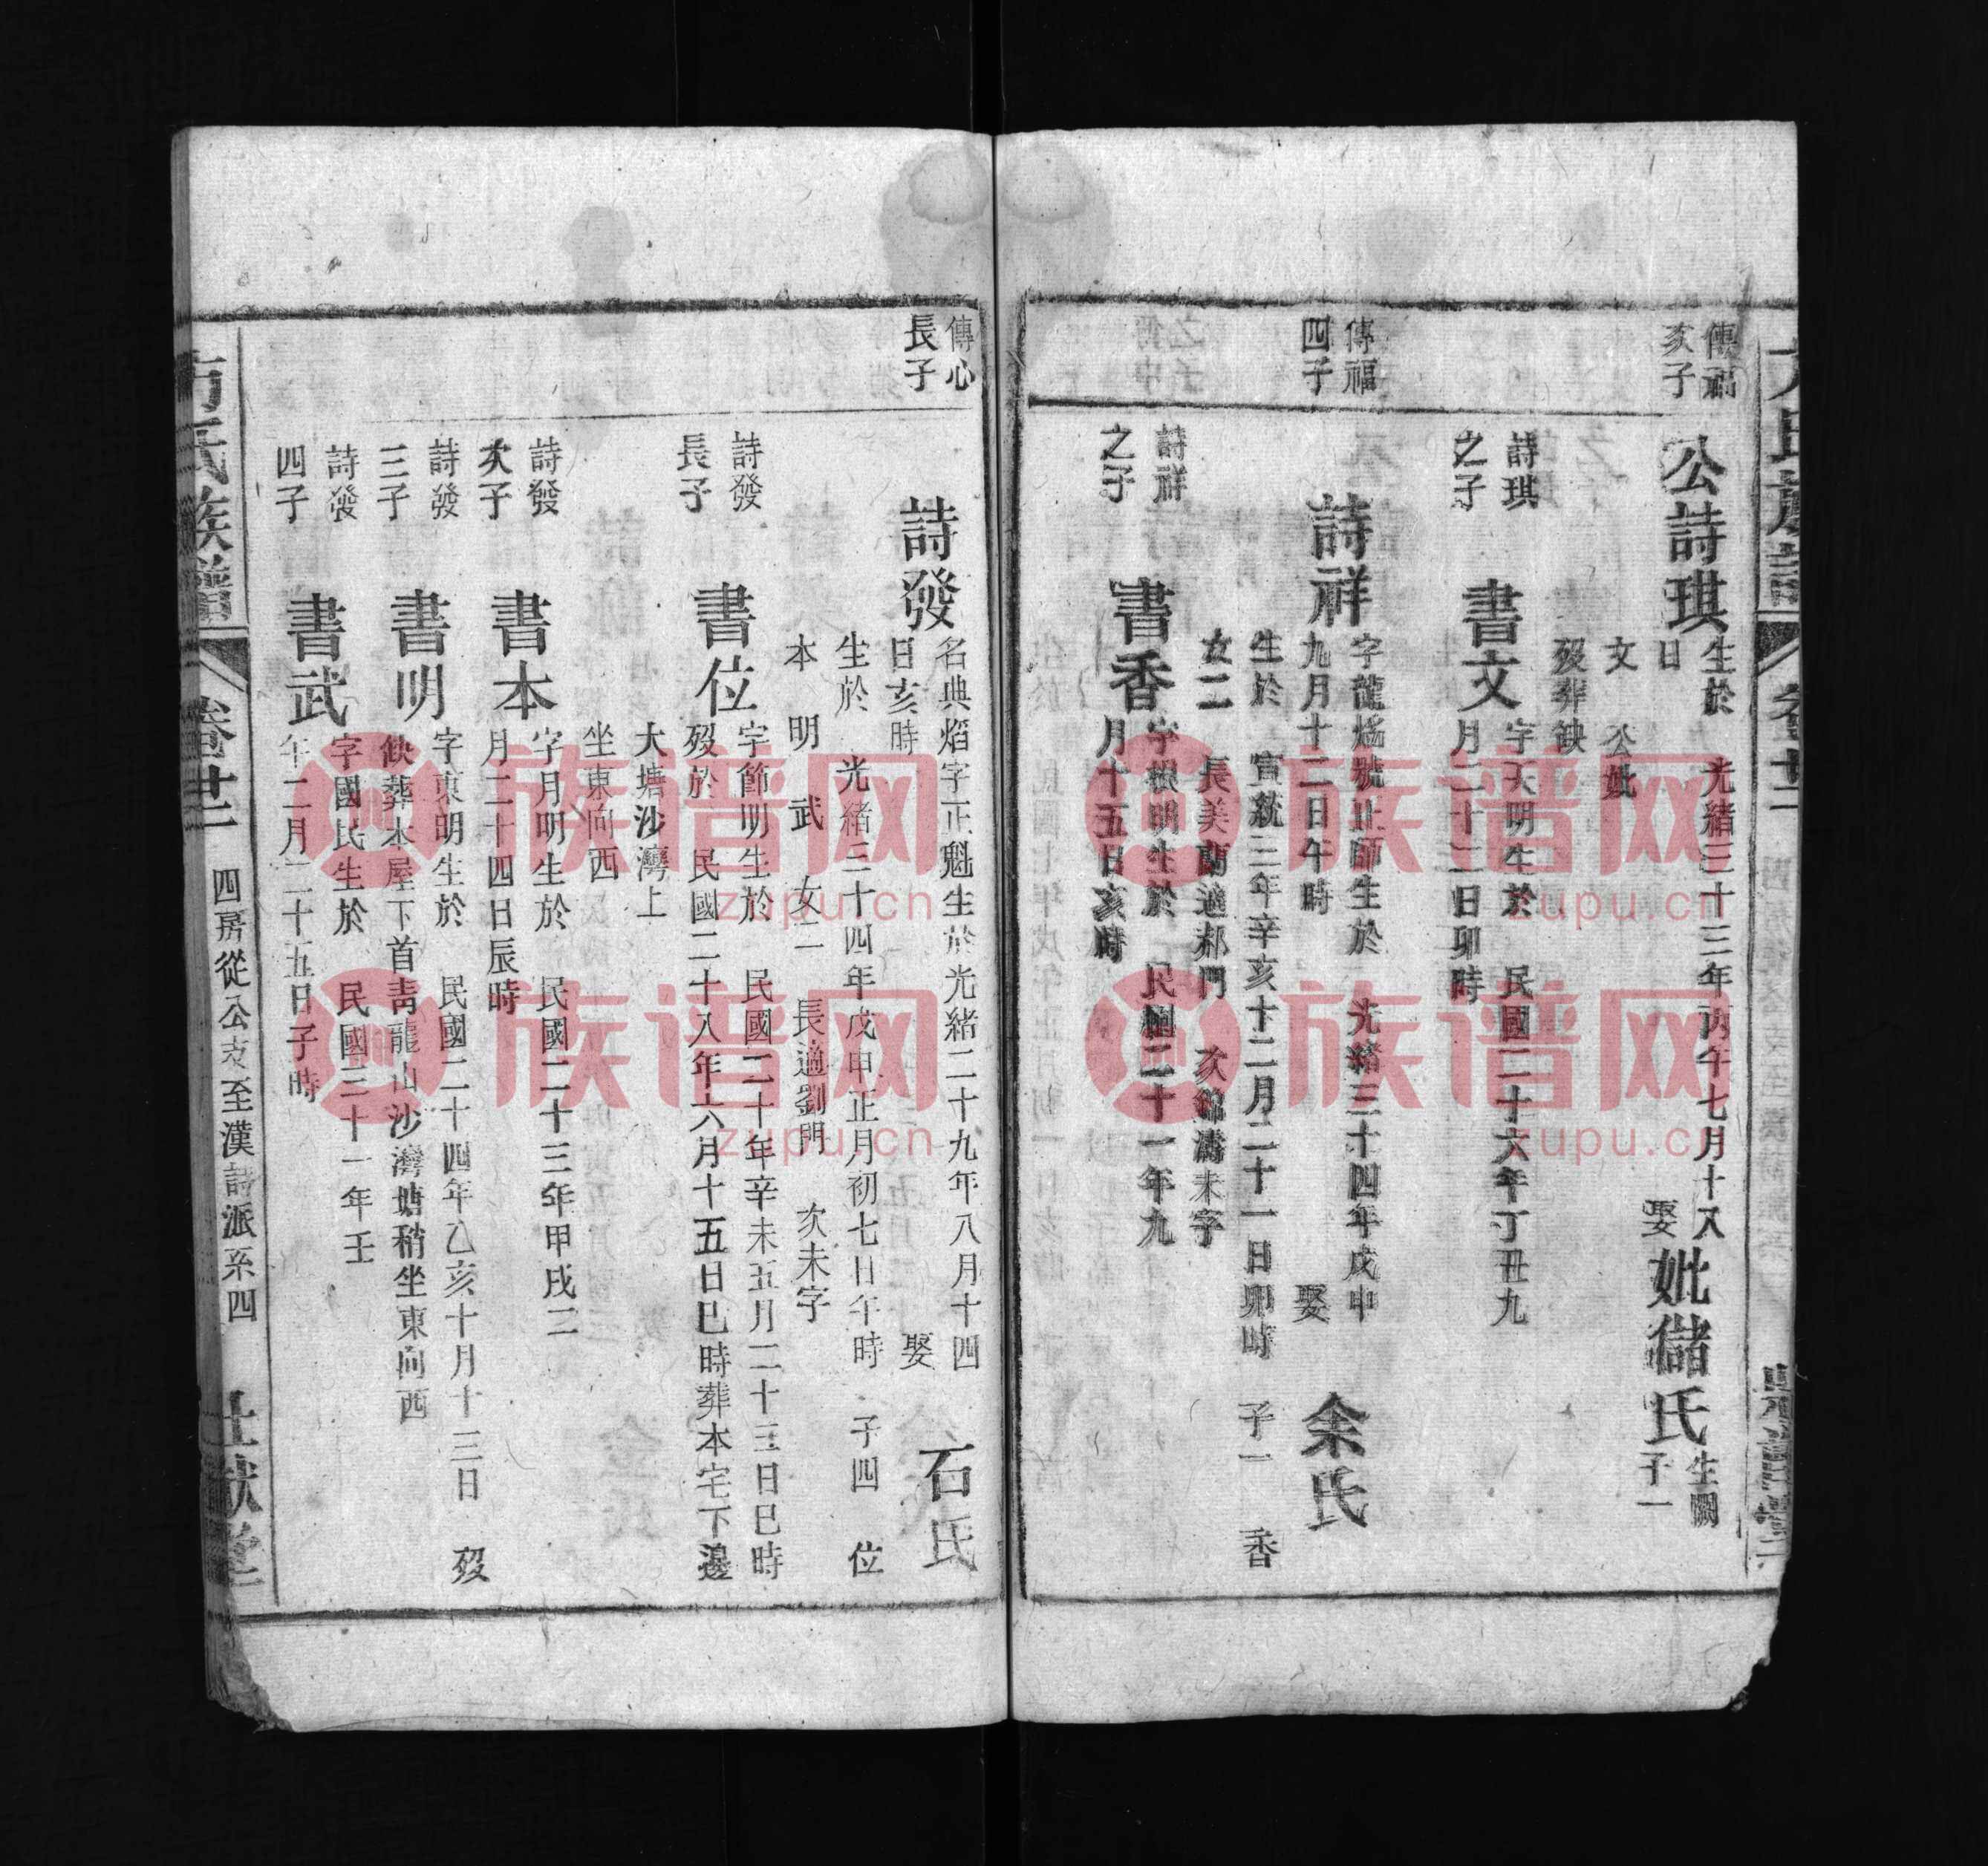 傳福
亥子
公詩琪
生於 光緒三十三年丙午七月十八
日
娶
妣儲氏
生闕
子一
文 公妣
歿葬缺
詩琪
之子
書文
字天明生於 民國二十六年丁丑九
月二十二日卯時
傳福
四子
詩祥
字龍 號正師生於 光緒三十四年戊申
九月十二日午時
娶
余氏
生於 宣統三年辛亥十二月二十一日卯時 子一 香
女二 長美蘭適郝門 次錦濤未字
詩祥
之子
書香
字根明生於 民國二十一年九
月十五日亥時
傳心
長子
詩發
名典焰字正魁生於光緒二十九年八月十四
日亥時
娶
石氏
生於 光緒三十四年戊申正月初七日午時 子四 位
本 明 武 女二 長適劉門 次未字
詩發
長子
書位
字節明生於 民國二十年辛未五月二十三日巳時
歿於 民國二十八年六月十五日巳時葬本宅下邊
大塘沙灣上
坐東向西
詩發
次子
書本
字月明生於 民國二十三年甲戌二
月二十四日辰時
詩發
三子
書明
字東明生於 民國二十四年乙亥十月十三日 歿
缺葬本屋下首青龍山沙灣塘稍坐東向西
詩發
四子
書武
字國民生於 民國三十一年壬
年二月二十五日子時
方氏族譜
卷廿二
四房從公支至漢詩派系四
族谱网
zupu.cn
族谱网
zupu.cn
族谱网
zupu.cn
族谱网
zupu.cn